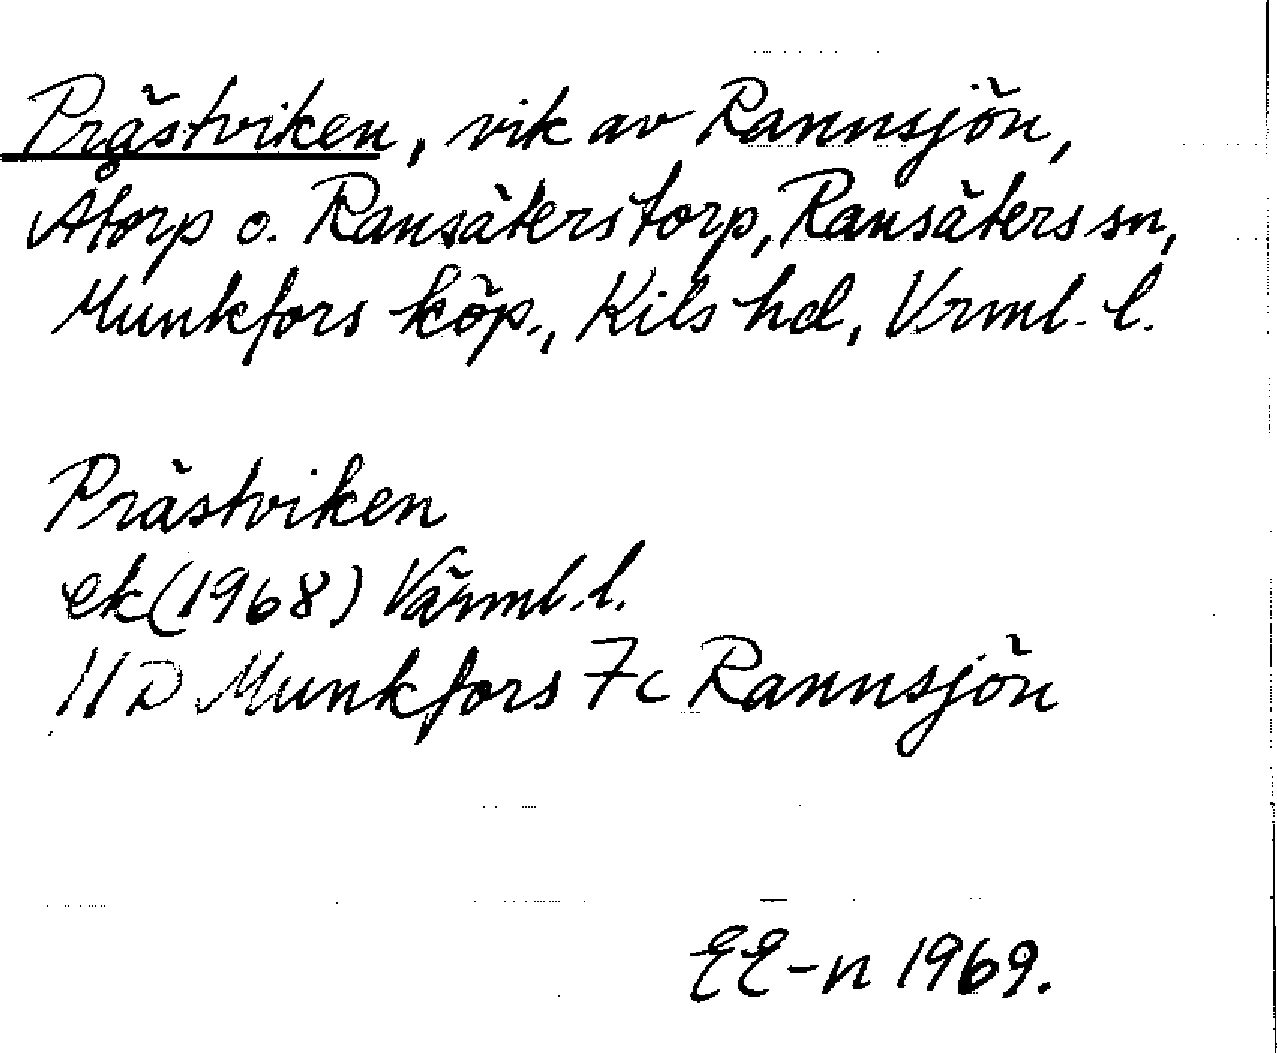 Prästviken, vik av Rannsjön,
Åtorp o. Ransäterstorp, Ransäters sn,
Munkfors köp., Kils hd, Vrml. l.
Prästviken
ek (1968) Värml. l.
11 D Munkfors 7c Rannsjön
EE-n 1969.